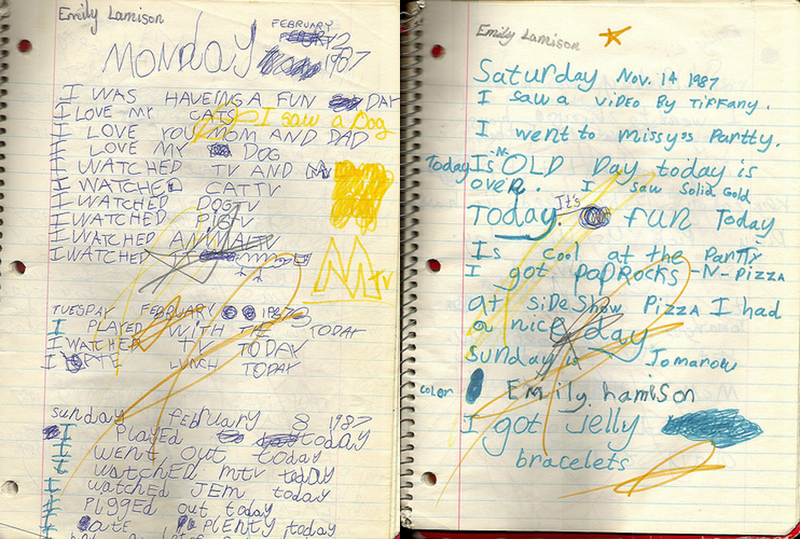 Emily Lamison
FEBRUARY
MONDAY 2 1987
I WAS HAVEING A FUN DAY
I LOVE MY CATS I saw a Dog
I LOVE YOU MOM AND DAD
I LOVE MY DOG
I WATCHED TV AND M
I WATCHED CATTV
I WATCHED DOGTV
I WATCHED PIGTV
I WATCHED ANIMALTV
I WATCHED
MTV
TUESDAY FEBRUARY 1987 3
I PLAYED WITH THE TODAY
I WATCHED TV TODAY
I ATE LUNCH TODAY
Sunday february 8 1987
I PlAYED today
I WENT OUT today
I WATCHED mtv today
I WATCHED JEM today
I PIGGED out today
I ate PLENTY today
Emily Lamison
Saturday Nov. 14 1987
I saw a video By Tiffany.
I went to missy's Partty.
Today Is -N- OLD Day today is
over. I saw Solid Gold
Today. It's fun Today
Is cool at the Partty
I got PoP Rocks -N- Pizza
at side Show Pizza I had
a nice day
sunday is Tomarow
color Emily. Lamison
I got Jelly
bracelets